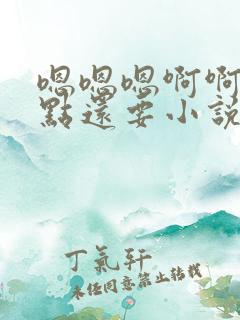 嗯嗯嗯啊啊
點還要小說
丁氣軒
未经同意禁止转载